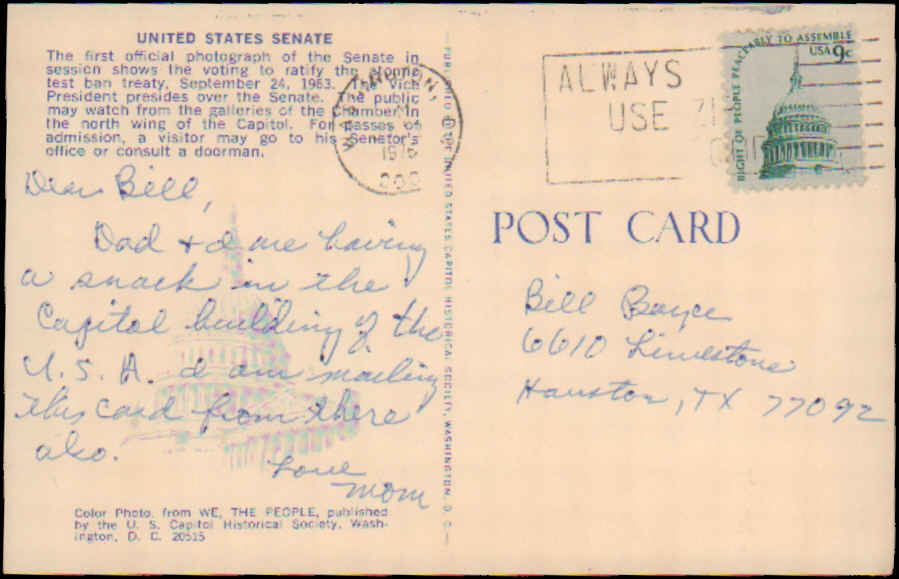 UNITED STATES SENATE
The first official photograph of the Senate in
session shows the voting to ratify the atomic
test ban treaty, September 24, 1963. The Vice
President presides over the Senate. The public
may watch from the galleries of the Chamber in
the north wing of the Capitol. For passes of
admission, a visitor may go to his Senator's
office or consult a doorman.
Dear Bill,
Dad + I are having
a snack in the
Capitol building of the
U. S. A. I am mailing
this card from there
also.
Love
Mom
Color Photo, from WE, THE PEOPLE, published
by the U. S. Capitol Historical Society, Wash-
ington, D. C. 20515
PUBLISHED BY THE UNITED STATES CAPITOL HISTORICAL SOCIETY, WASHINGTON, D. C.
ALWAYS
USE ZI
RIGHT OF PEOPLE PEACEABLY TO ASSEMBLE
USA 9c
POST CARD
Bill Boyce
6610 Limestone
Houston, TX 77092